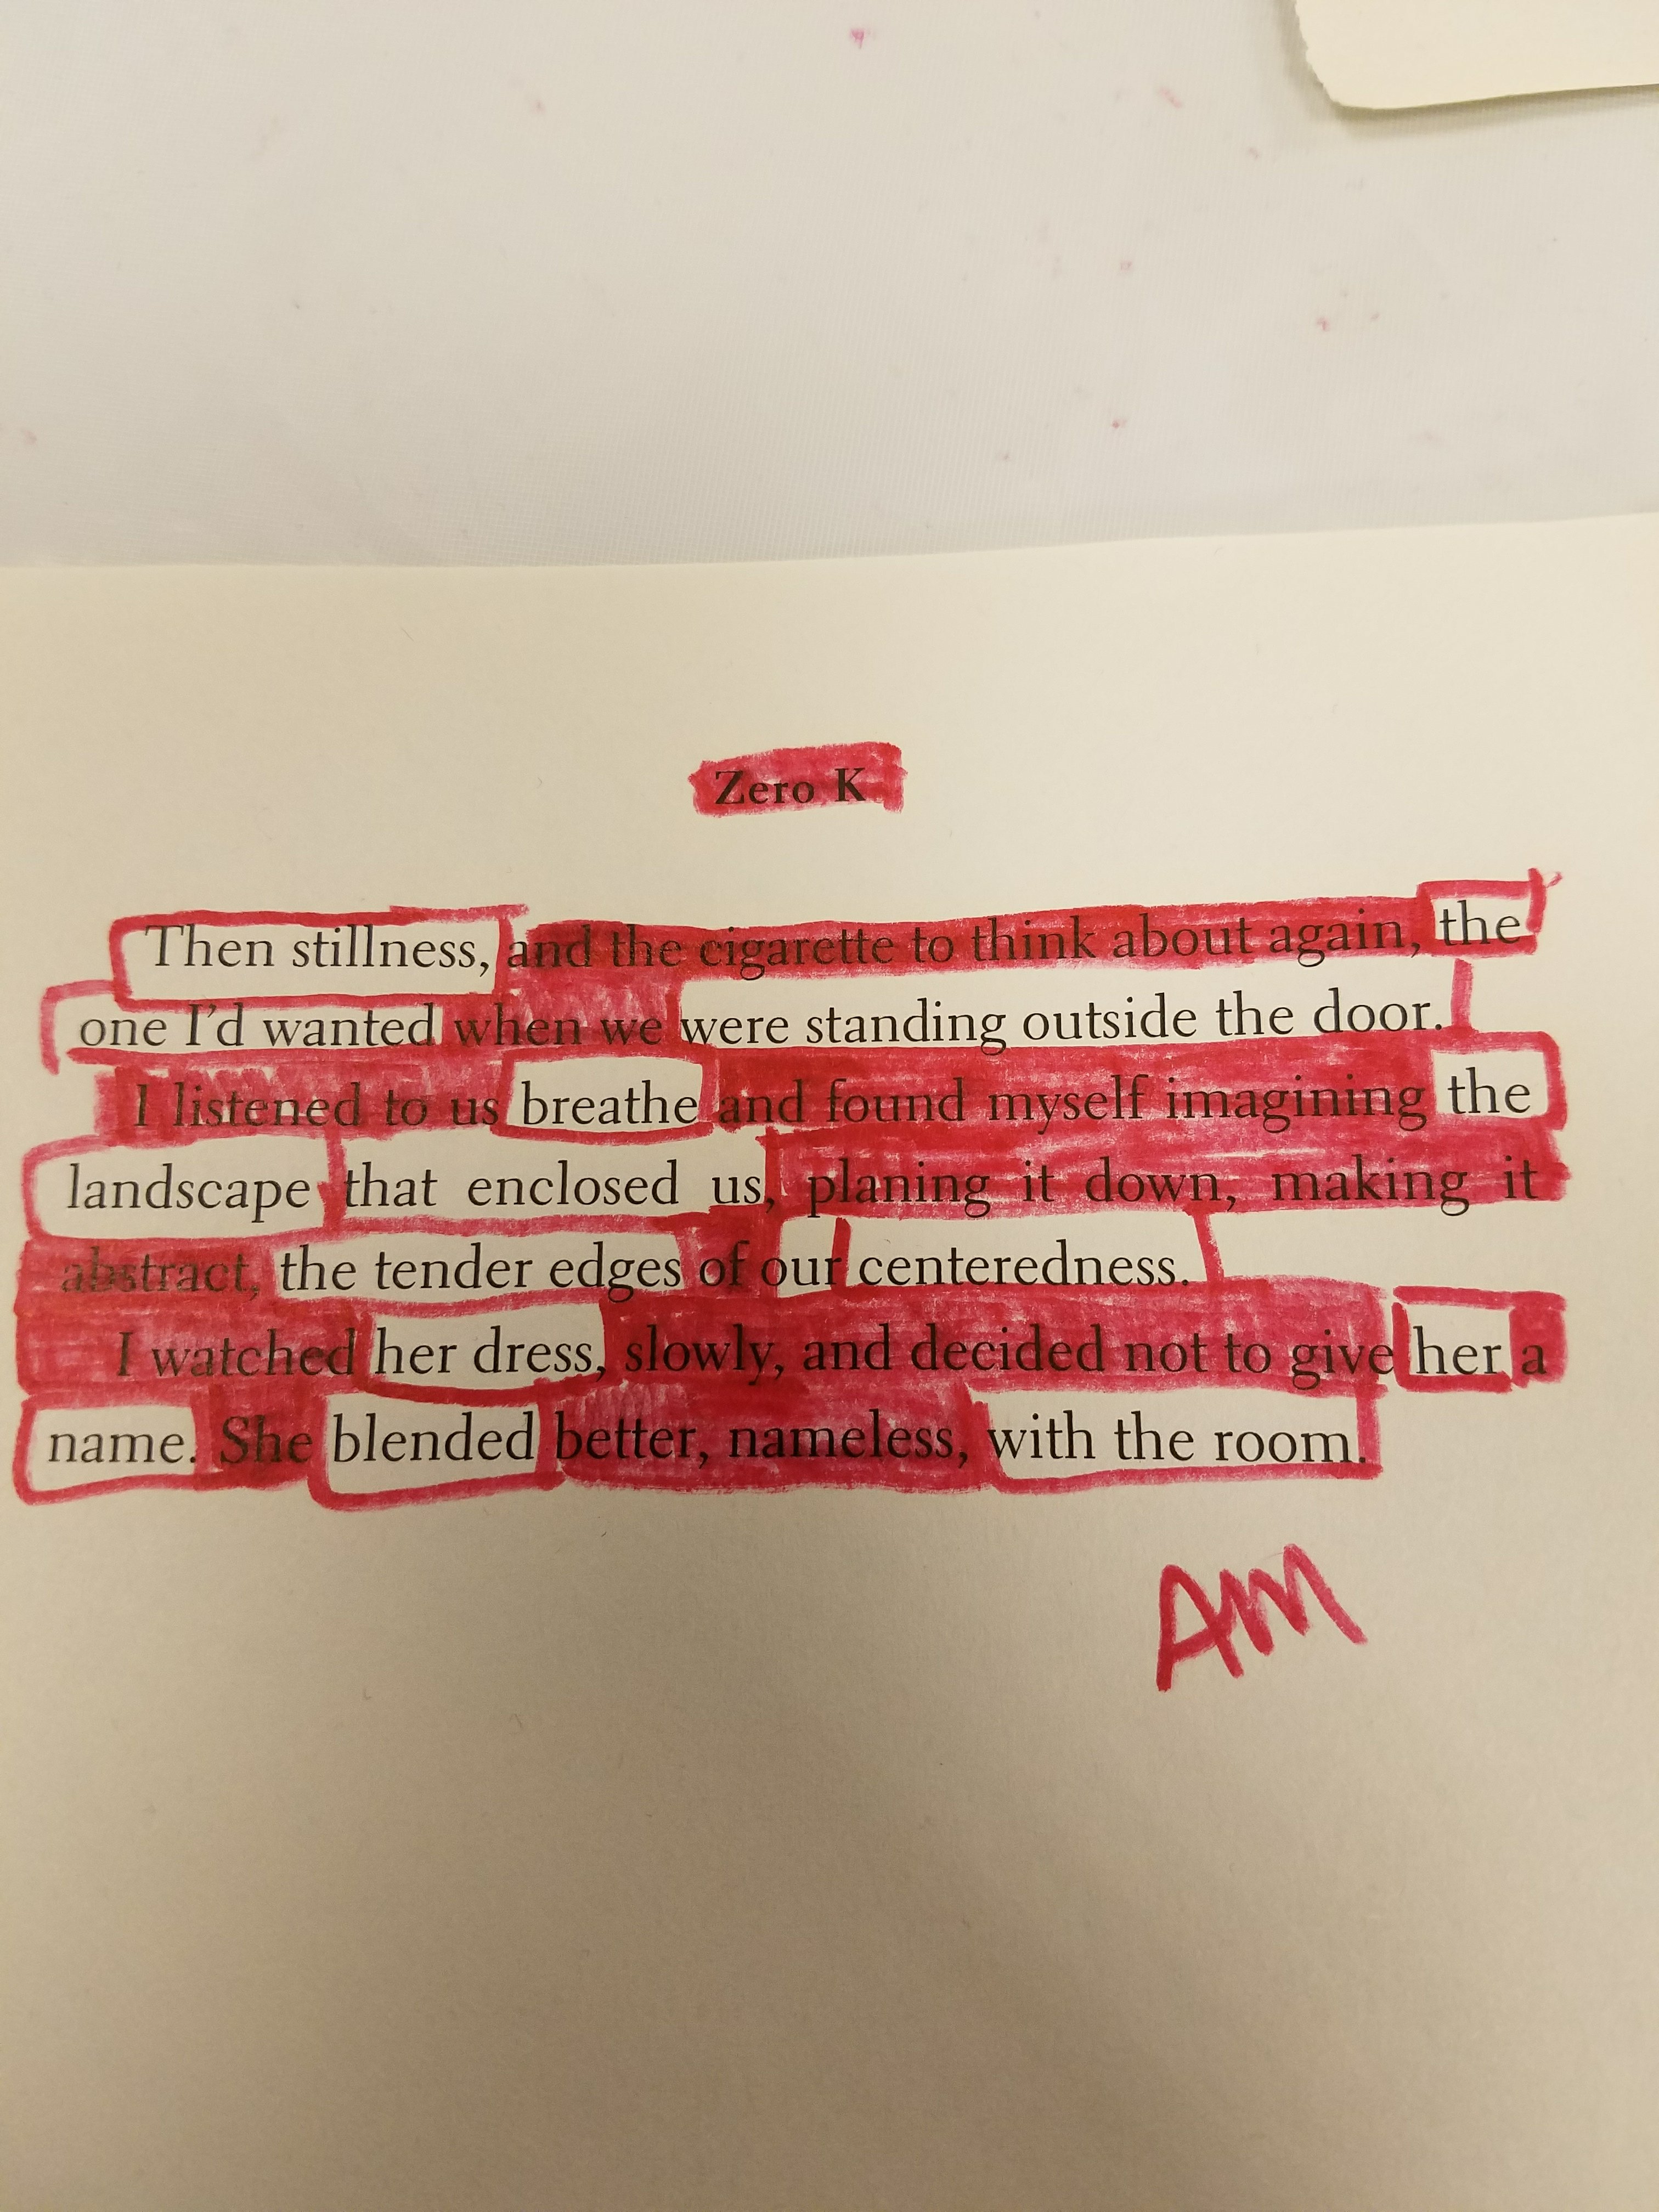 Zero K
Then stillness, and the cigarette to think about again, the
one I'd wanted when we were standing outside the door.
I listened to us breathe and found myself imagining the
landscape that enclosed us, planing it down, making it
abstract, the tender edges of our centeredness.
I watched her dress, slowly, and decided not to give her a
name. She blended better, nameless, with the room.
AM